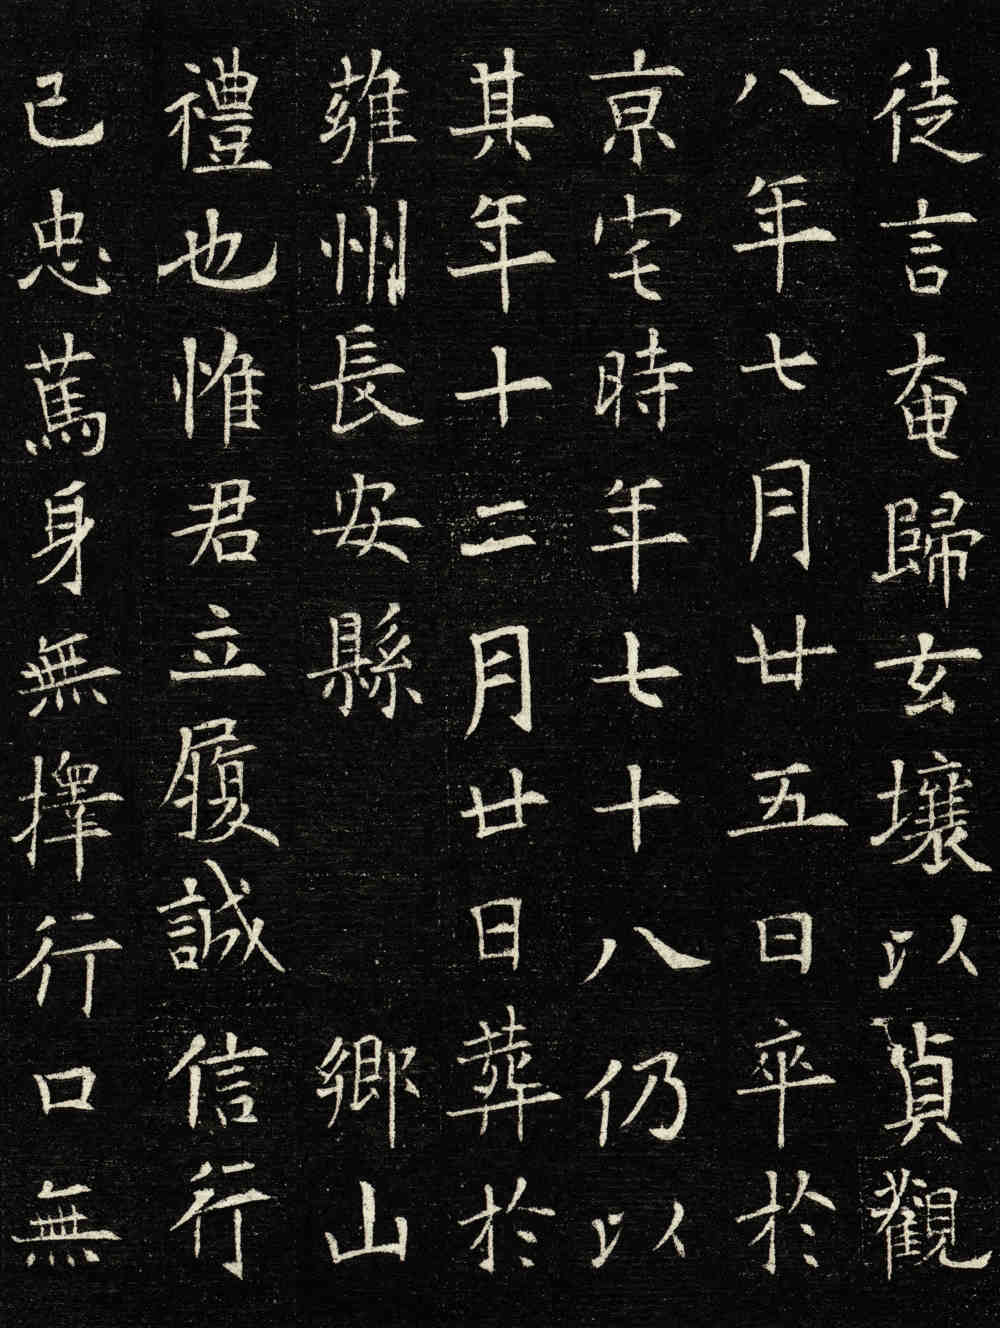 徒言奄歸玄壤以貞觀
八年七月廿五日卒於
京宅時年七十八仍以
其年十二月廿日葬於
雍州長安縣 鄉山
禮也惟君立履誠信行
己忠篤身無擇行口無